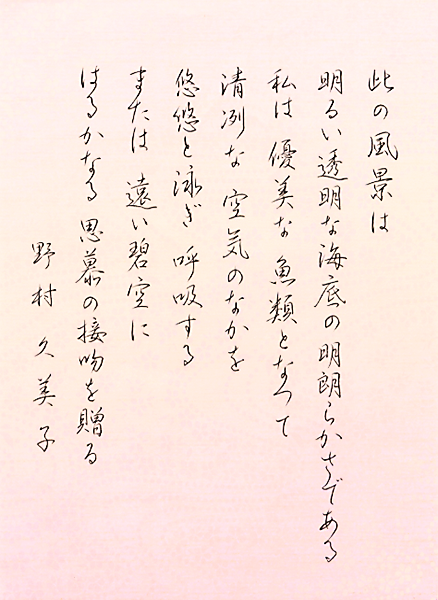 此の風景は
明るい透明な海底の明朗らかさである
私は優美な魚類となつて
清冽な空気のなかを
悠悠と泳ぎ呼吸する
または遠い碧空に
はるかなる思慕の接吻を贈る
野村久美子